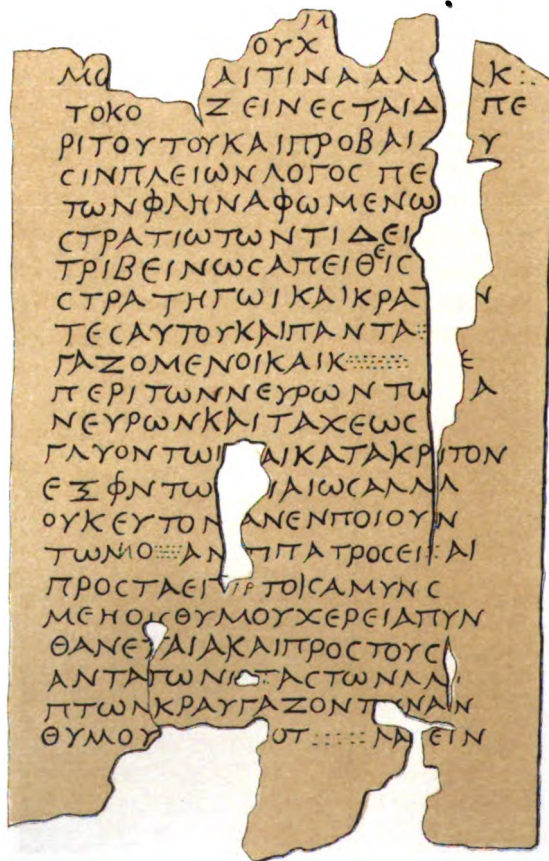 ΟΥΧ
ΜΟ ΑΙΤΙΝΑΑΛΛ ΛΚ
ΤΟΚΟ ΖΕΙΝΕϹΤΑΙΔ ΠΕ
ΡΙΤΟΥΤΟΥΚΑΙΠΡΟΒΑΙ Υ
ϹΙΝΠΛΕΙΩΝΛΟΓΟϹ ΠΕ
ΤΩΝΦΛΗΝΑΦΩΜΕΝΩ
ϹΤΡΑΤΙΩΤΩΝΤΙΔΕΙ
ΤΡΙΒΕΙΝΩϹΑΠΕΙΘΕΙϹ
ϹΤΡΑΤΗΓΩΙΚΑΙΚΡΑΤ Ν
ΤΕϹΑΥΤΟΥΚΑΙΠΑΝΤΑ
ΓΑΖΟΜΕΝΟΙΚΑΙΚ Ε
ΠΕΡΙΤΩΝΝΕΥΡΩΝΤΩ Α
ΝΕΥΡΩΝΚΑΙΤΑΧΕΩϹ
ΓΛΥΟΝΤΩΙ ΑΙΚΑΤΑΚΡΙΤΟΝ
ΕΞΦΝΤΩ ΙΑΙΩϹΑΛΛΛ
ΟΥΚΕΥΤΟΝ ΑΝΕΝΠΟΙΟΥΝ
ΤΩΝΟ ΑΝ ΠΠΑΤΡΟϹΕΙ ΑΙ
ΠΡΟϹΤΑΕΙΓ ΙΡΤΟΙϹΑΜΥΝϹ
ΜΕΗΟΚΘΥΜΟΥΧΕΡΕΙΑΠΥΝ
ΘΑΝΕΥΑΙΑΚΑΙΠΡΟϹΤΟΥϹ
ΑΝΤΑΓΩΝΙ ΤΑϹΤΩΝΛΛ
ΠΤΩΝΚΡΑΥΓΑΖΟΝΤ ΝΑΙΝ
ΘΥΜΟΥ ΟΤ ΛΑ ΕΙΝ